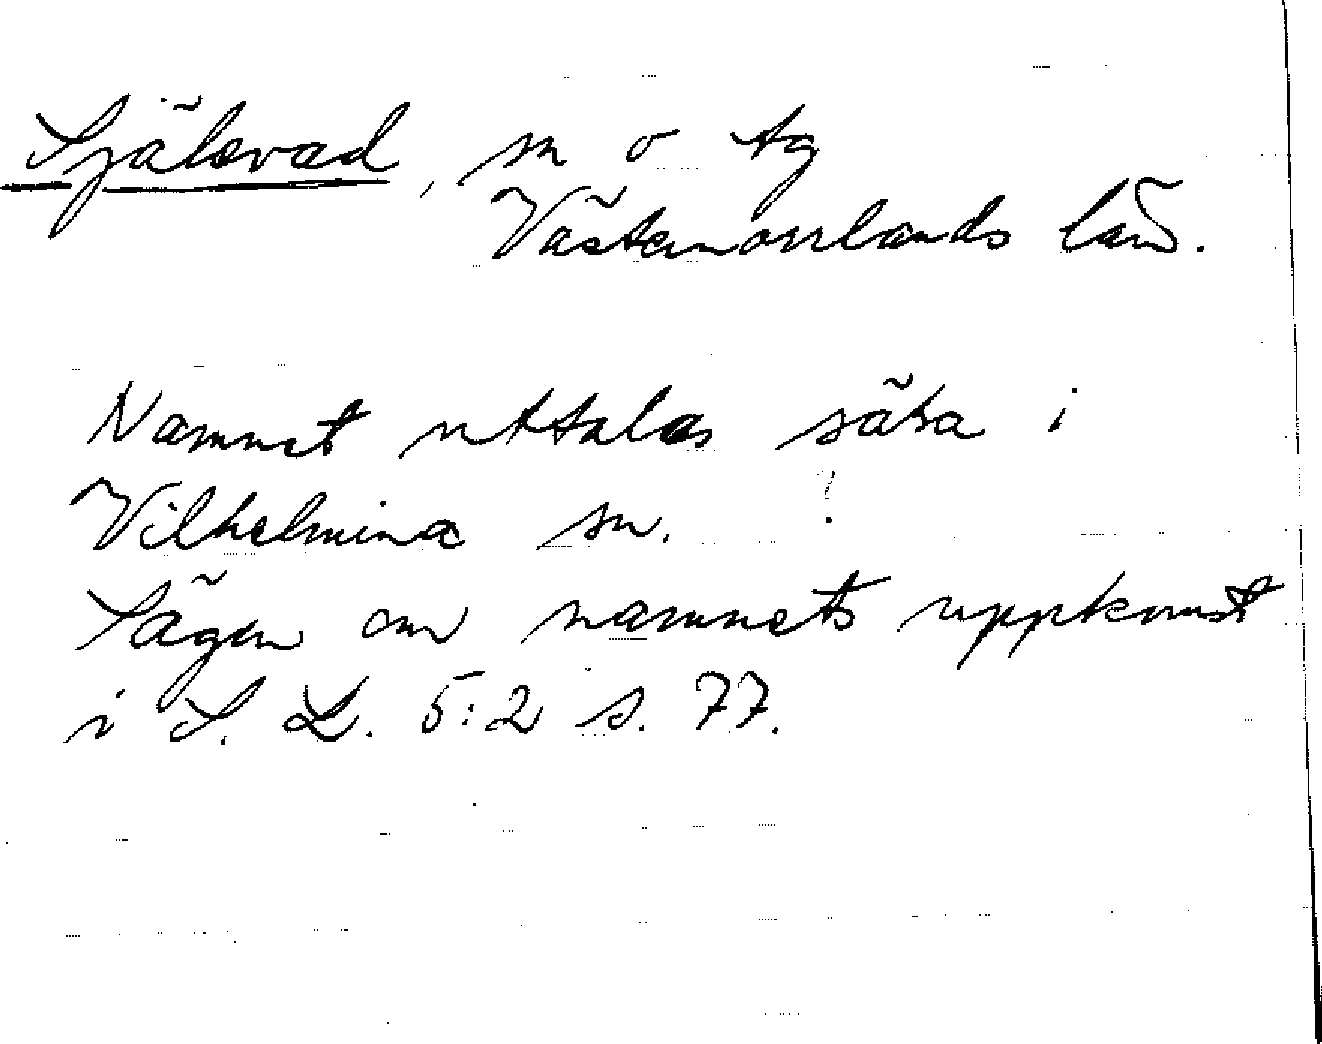 Själevad, sn o tg
Västernorrlands län.
Namnet uttalas säva i
Vilhelmina sn. !
Sägen om namnets uppkomst
i S. L. 5:2 s. 77.